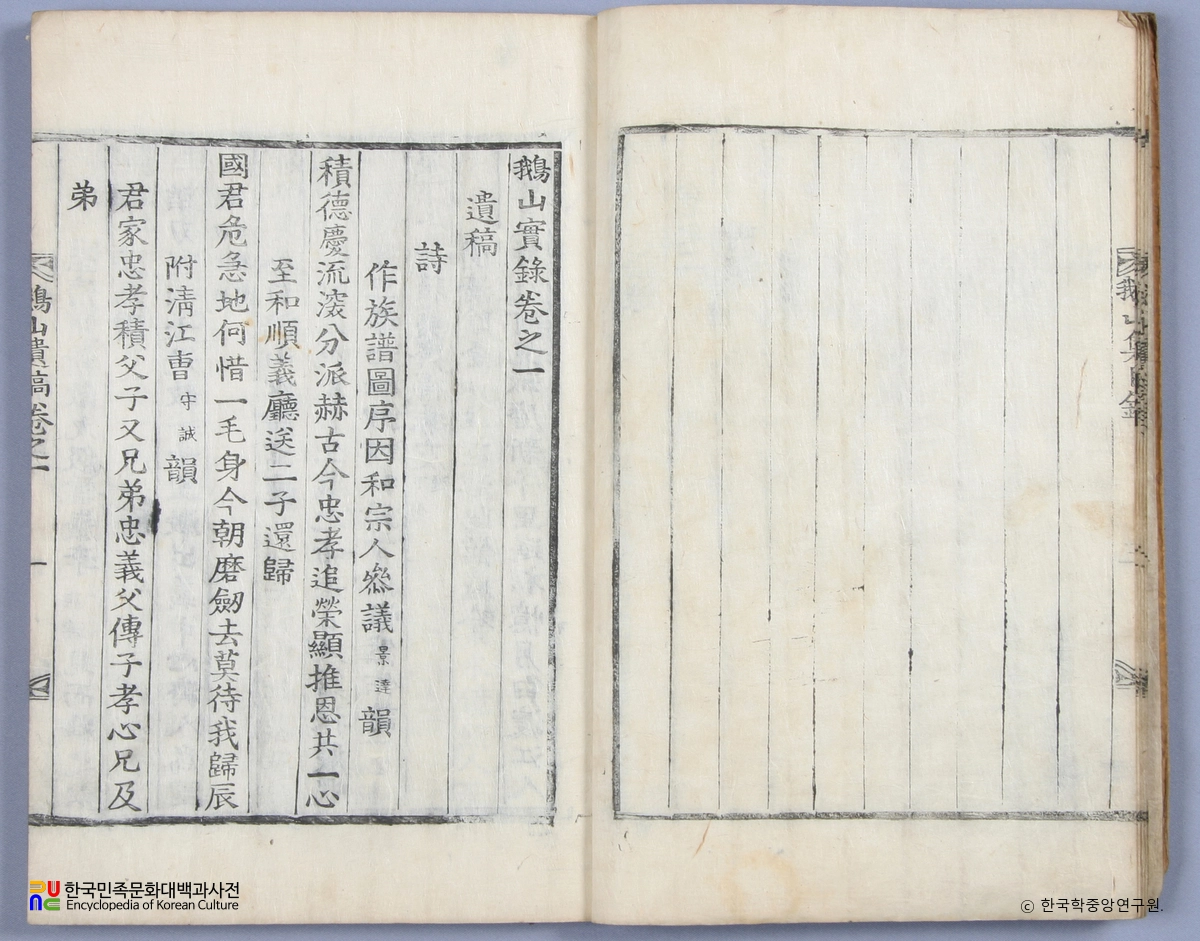 鵝山實錄卷之一
遺稿
詩
作族譜圖序因和宗人叅議景達韻
積德慶流滾分派赫古今忠孝追榮顯推恩共一心
至和順義廳送二子還歸
國君危急地何惜一毛身今朝磨劒去莫待我歸辰
附淸江曺守誠韻
君家忠孝積父子又兄弟忠義父傳子孝心兄及
弟
鵝山遺稿卷之一
一
한국민족문화대백과사전
Encyclopedia of Korean Culture
ⓒ 한국학중앙연구원.